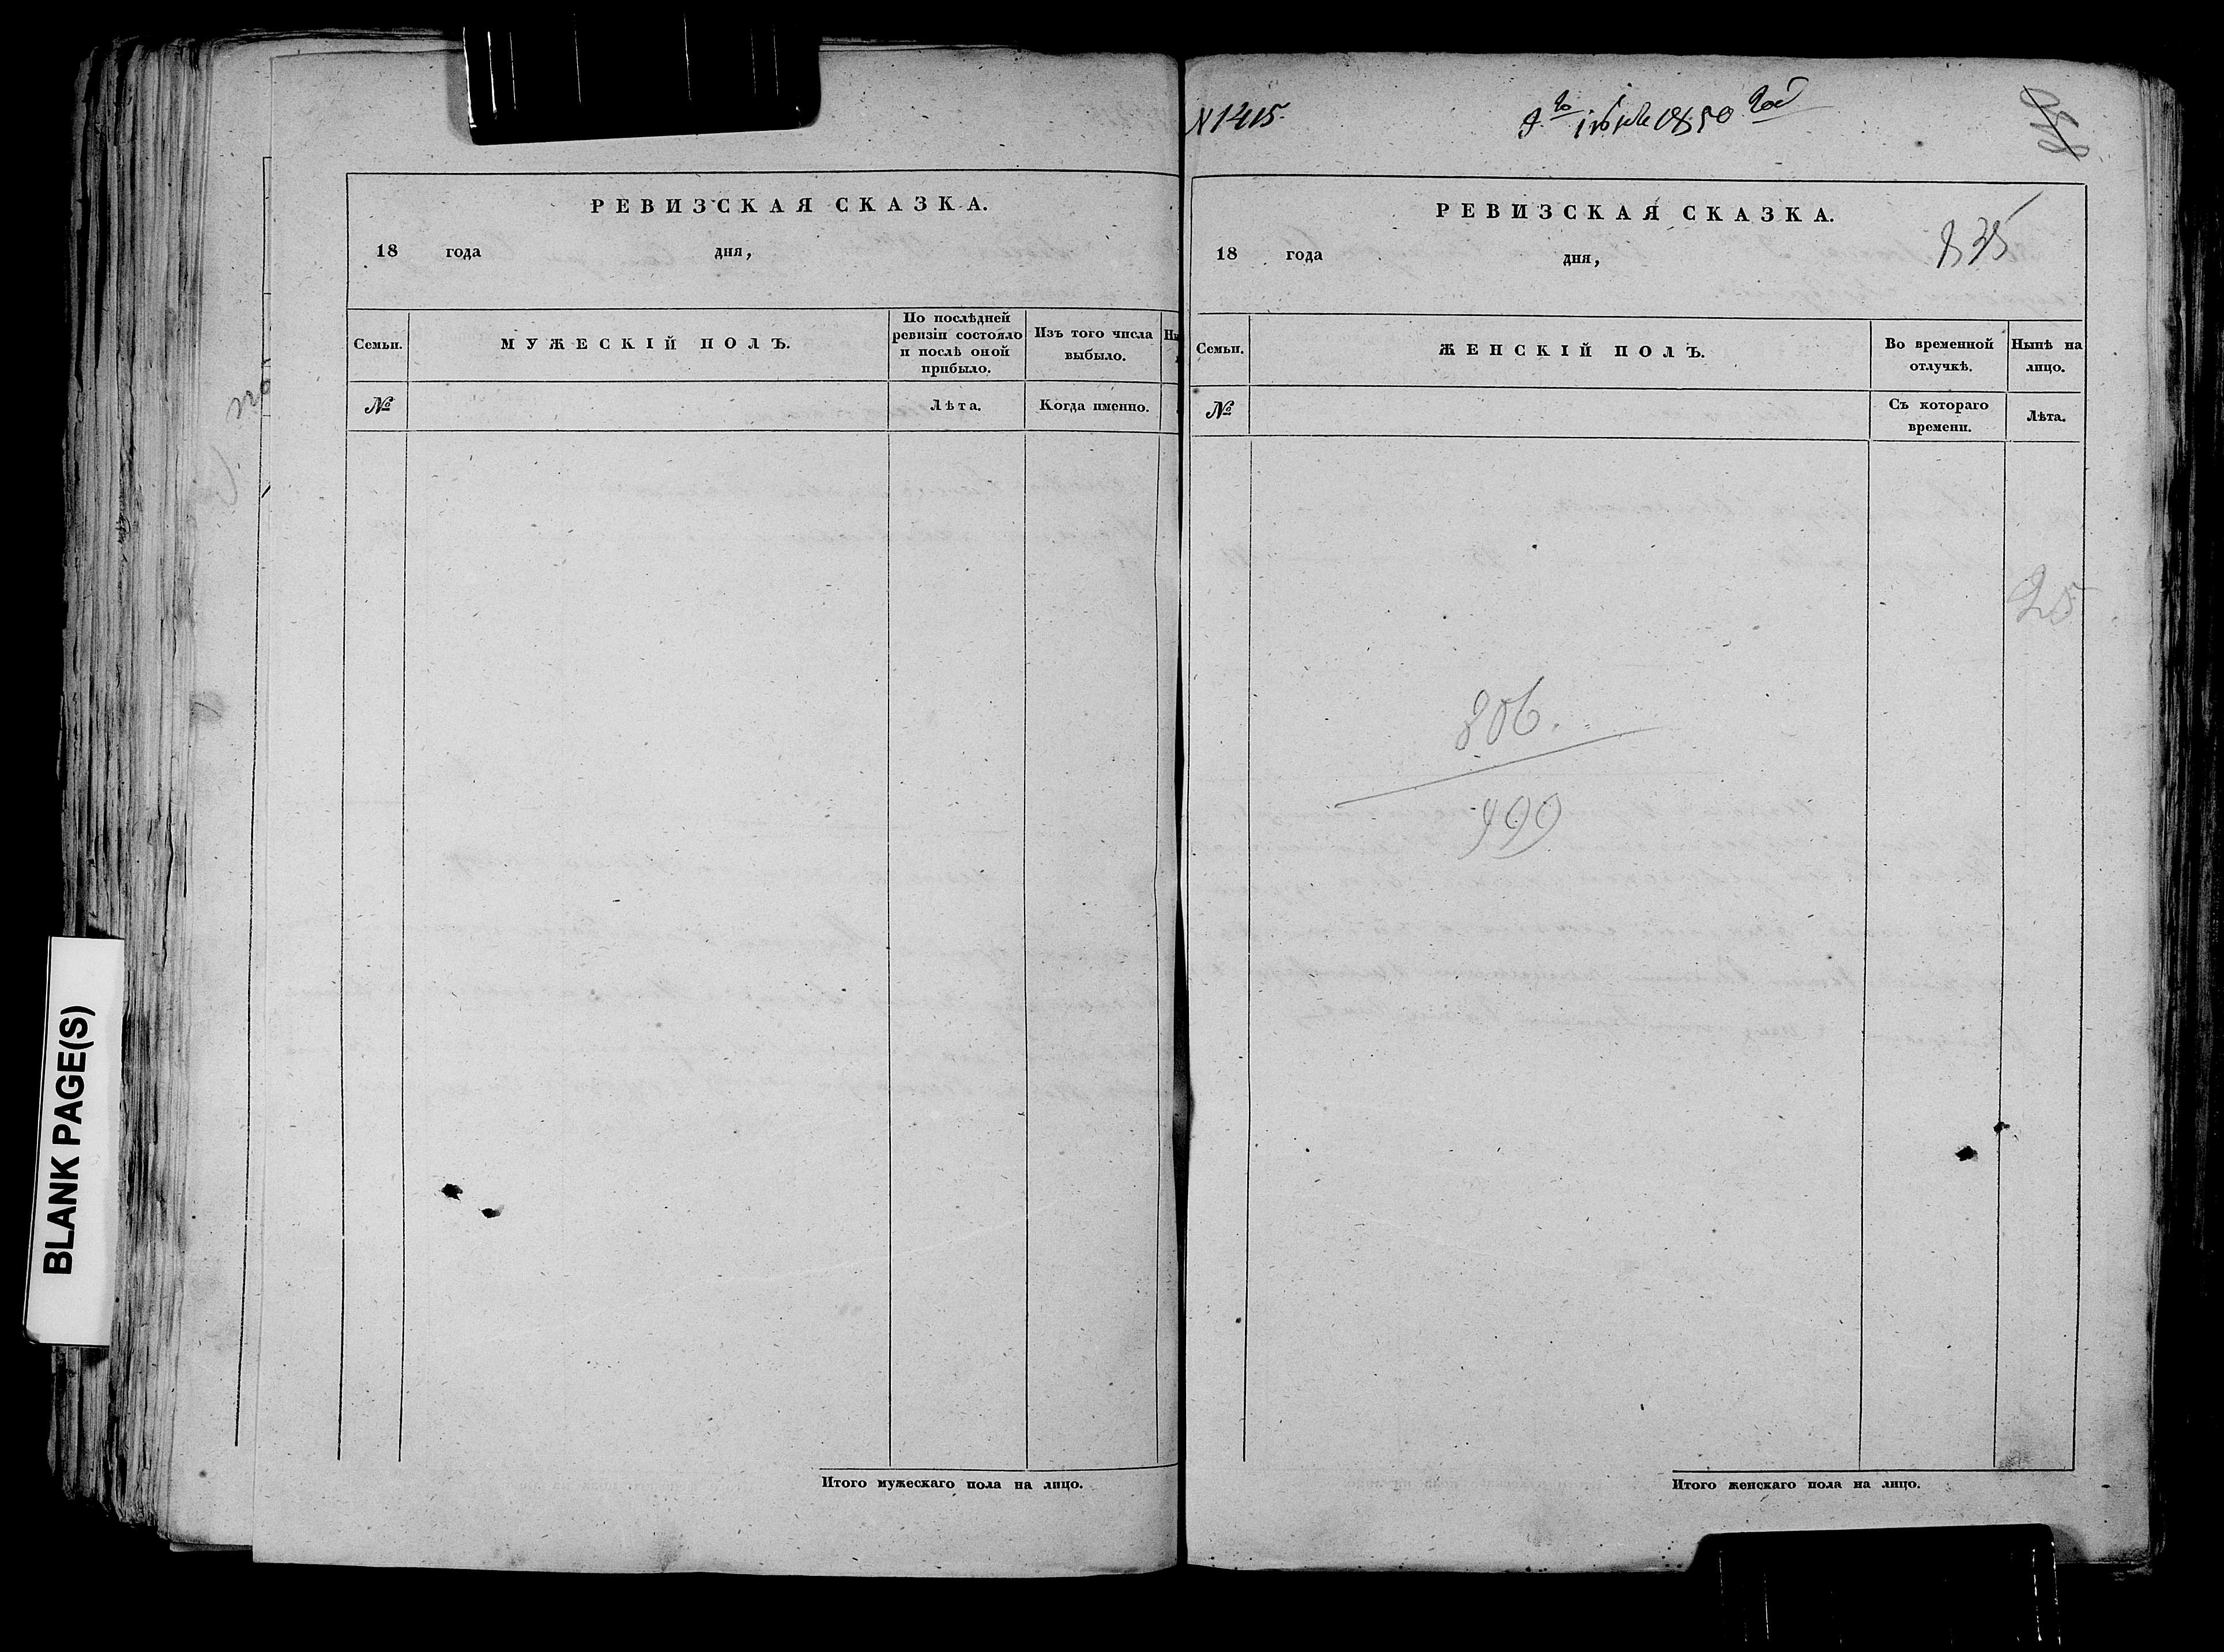 РЕВИЗСКАЯ СКАЗКА.
18 года дня,
Семьи.
МУЖЕСКІЙ ПОЛЪ.
По послѣдней ревизіи состояло и послѣ оной прибыло.
Изъ того числа выбыло.
№
Лѣта.
Когда именно.
Итого мужескаго пола на лицо.
N 1415.
9.го іюня 1850 год
РЕВИЗСКАЯ СКАЗКА.
835
18 года дня,
Семьи.
ЖЕНСКІЙ ПОЛЪ.
Во временной отлучкѣ.
Нынѣ на лицо.
№
Съ котораго времени.
Лѣта.
25
806.
499
Итого женскаго пола на лицо.
BLANK PAGE(S)